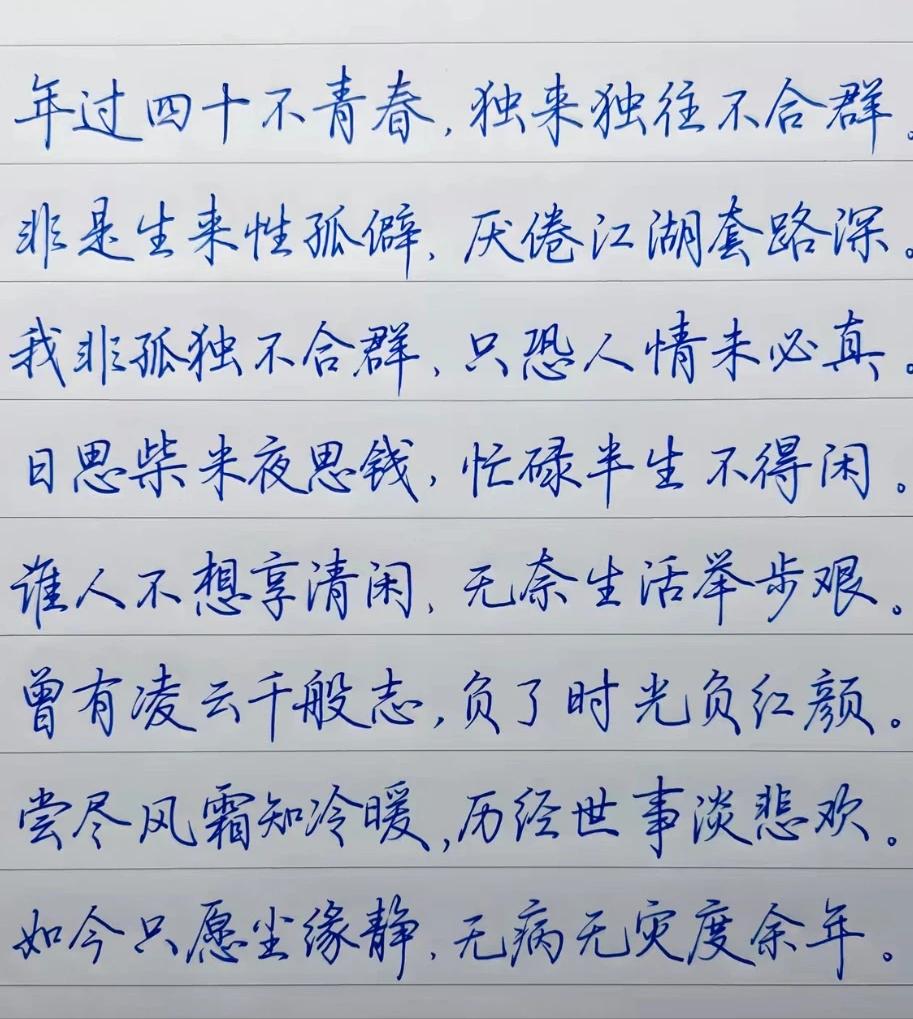 年过四十不青春,独来独往不合群。
非是生来性孤僻,厌倦江湖套路深。
我非孤独不合群,只恐人情未必真。
日思柴米夜思钱,忙碌半生不得闲。
谁人不想享清闲,无奈生活举步艰。
曾有凌云千般志,负了时光负红颜。
尝尽风霜知冷暖,历经世事淡悲欢。
如今只愿尘缘静,无病无灾度余年。